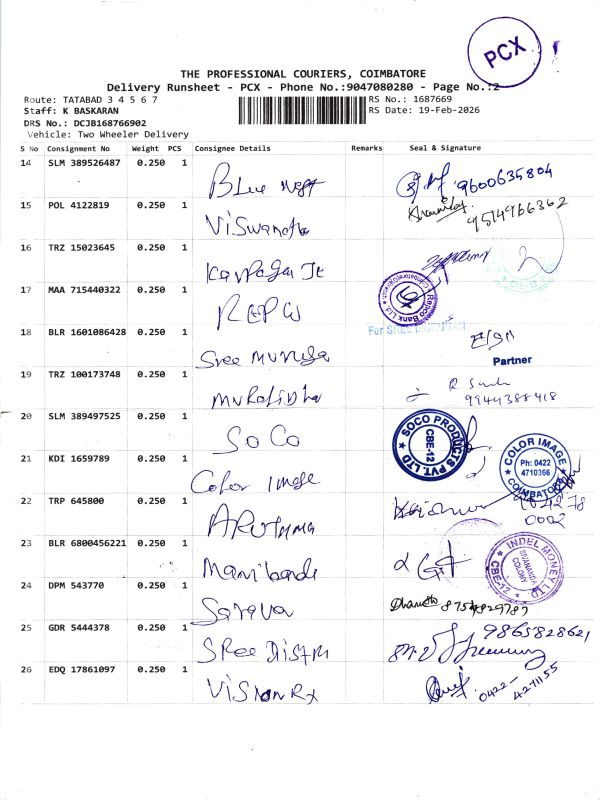 PCX
THE PROFESSIONAL COURIERS, COIMBATORE
Delivery Runsheet - PCX - Phone No.:9047080280 - Page No.:2
Route: TATABAD 3 4 5 6 7
RS No.: 1687669
Staff: K BASKARAN
RS Date: 19-Feb-2026
DRS No.: DCJB168766902
Vehicle: Two Wheeler Delivery
S No Consignment No Weight PCS Consignee Details Remarks Seal & Signature
14 SLM 389526487 0.250 1 Blue 9600635804
15 POL 4122819 0.250 1 Viswanatha 9514966362
16 TRZ 15023645 0.250 1
17 MAA 715440322 0.250 1 REPCO Repco Bank Ltd.
For SREE
18 BLR 1601086428 0.250 1 Sree Muruga
Partner
19 TRZ 100173748 0.250 1 9944388418
20 SLM 389497525 0.250 1 SoCo SOCO PRODUCTS PVT LTD CBE-12
21 KDI 1659789 0.250 1 Color image COLOR IMAGE Ph: 0422 4710366 COIMBATORE
22 TRP 645800 0.250 1
23 BLR 6800456221 0.250 1 INDEL MONEY LTD SIVANANDA COLONY CBE-12
24 DPM 543770 0.250 1
25 GDR 5444378 0.250 1 SRee 9865828621
26 EDQ 17861097 0.250 1 VisionRx 0422-4271155